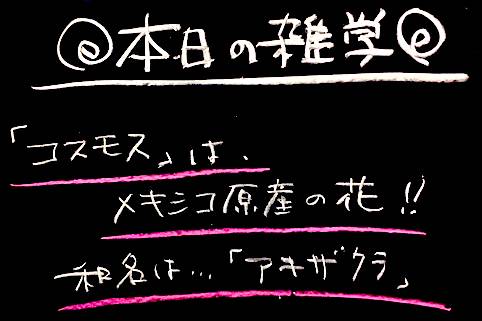 @本日の雑学@
「コスモス」は、
メキシコ原産の花!!
和名は…「アキザクラ」